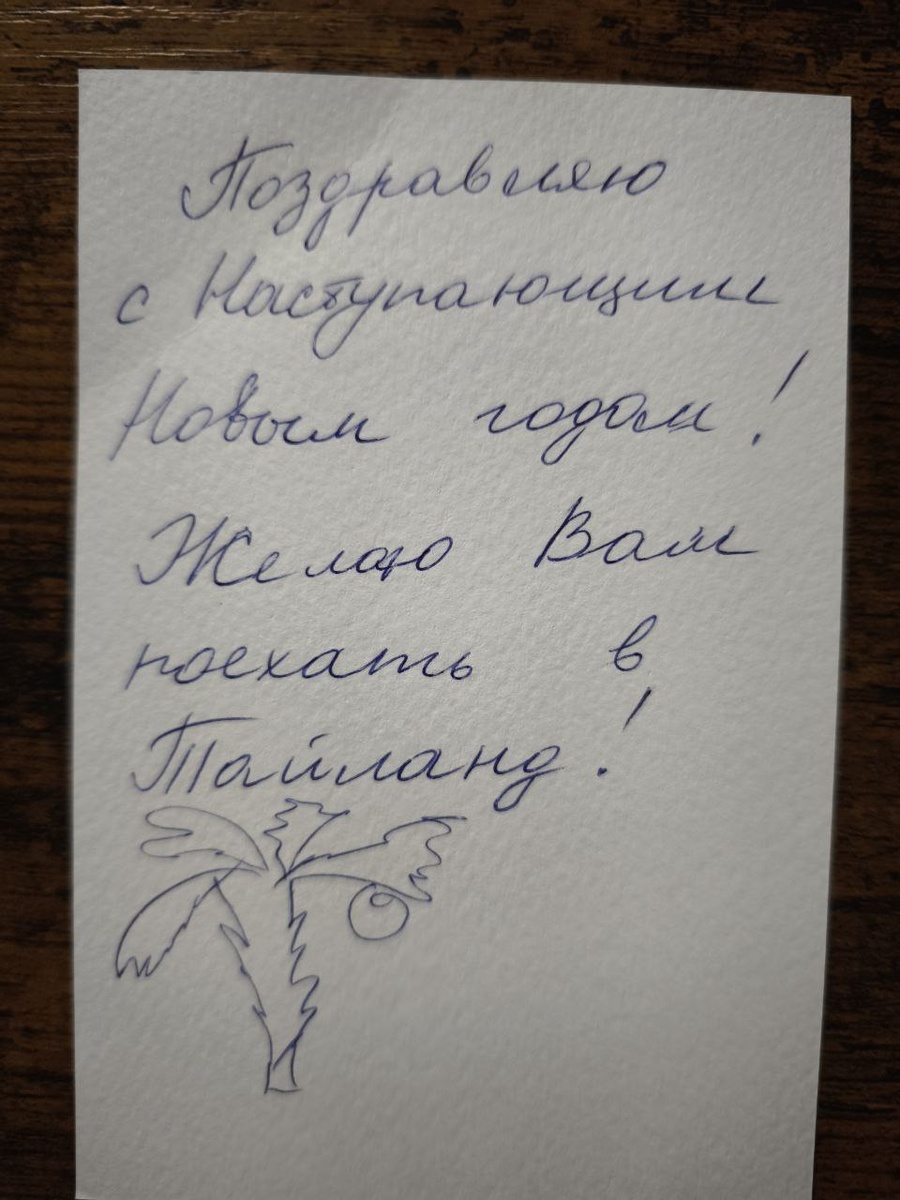 Поздравляю
с Наступающим
Новым годом!
Желаю Вам
поехать в
Тайланд!